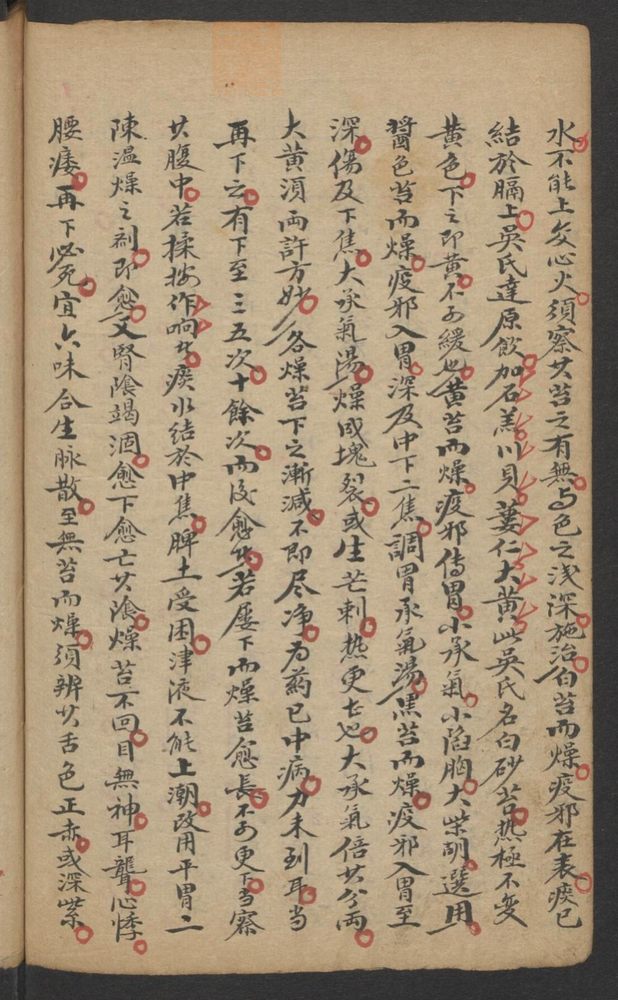 水不能上交心火須察其苔之有無与色之浅深施治白苔而燥疫邪在表痰已
結於膈上吳氏達原飲加石羔川貝蔞仁大黄此吳氏名白砂苔熱極不変
黄色下之即黄不可緩也黄苔而燥疫邪傳胃小承氣小陷胸大柴胡選用
醬色苔而燥疫邪入胃深及中下二焦調胃承氣湯黒苔而燥疫邪入胃至
深傷及下焦大承氣湯燥成塊裂或生芒刺熱更甚也大承氣倍其分両
大黄須両許方妙各燥苔下之漸減不即尽净為葯已中病力未到耳当
再下之有下至三五次十餘次而後愈者若屡下而燥苔愈長不可更下当察
其腹中若揉按作响者痰水結於中焦脾土受困津液不能上潮改用平胃二
陳温燥之剤即愈又腎陰竭涸愈下愈亡其陰燥苔不回目無神耳聾心悸
腰痿再下必死宜六味合生脉散至無苔而燥須辨其舌色正赤或深紫